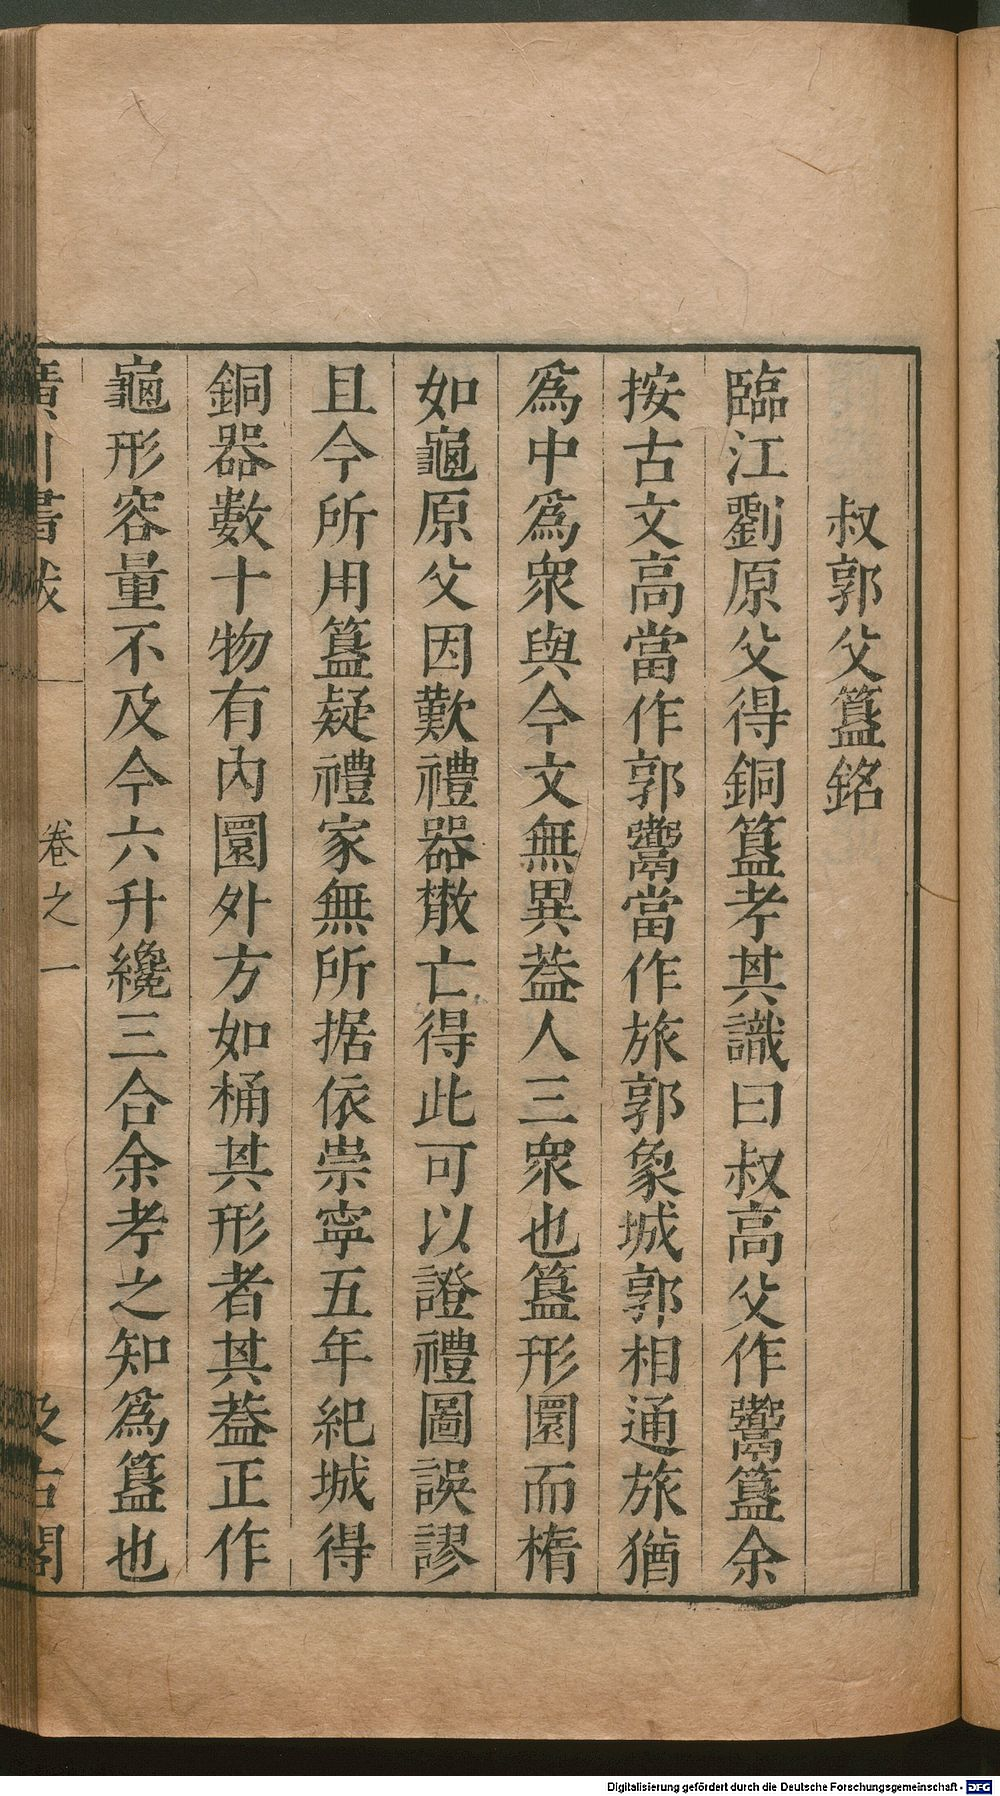 叔郭父簋銘
臨江劉原父得銅簋孝其識曰叔高父作鬻簋余
按古文高當作郭鬻當作旅郭象城郭相通旅猶
爲中爲衆與今文無異葢人三衆也簋形圜而橢
如龜原父因歎禮器散亡得此可以證禮圖誤謬
且今所用簋疑禮家無所据依崇寧五年紀城得
銅器數十物有內圜外方如桶其形者其葢正作
龜形容量不及今六升纔三合余孝之知爲簋也
廣川書跋 卷之一 汲古閣
Digitalisierung gefördert durch die Deutsche Forschungsgemeinschaft - DFG